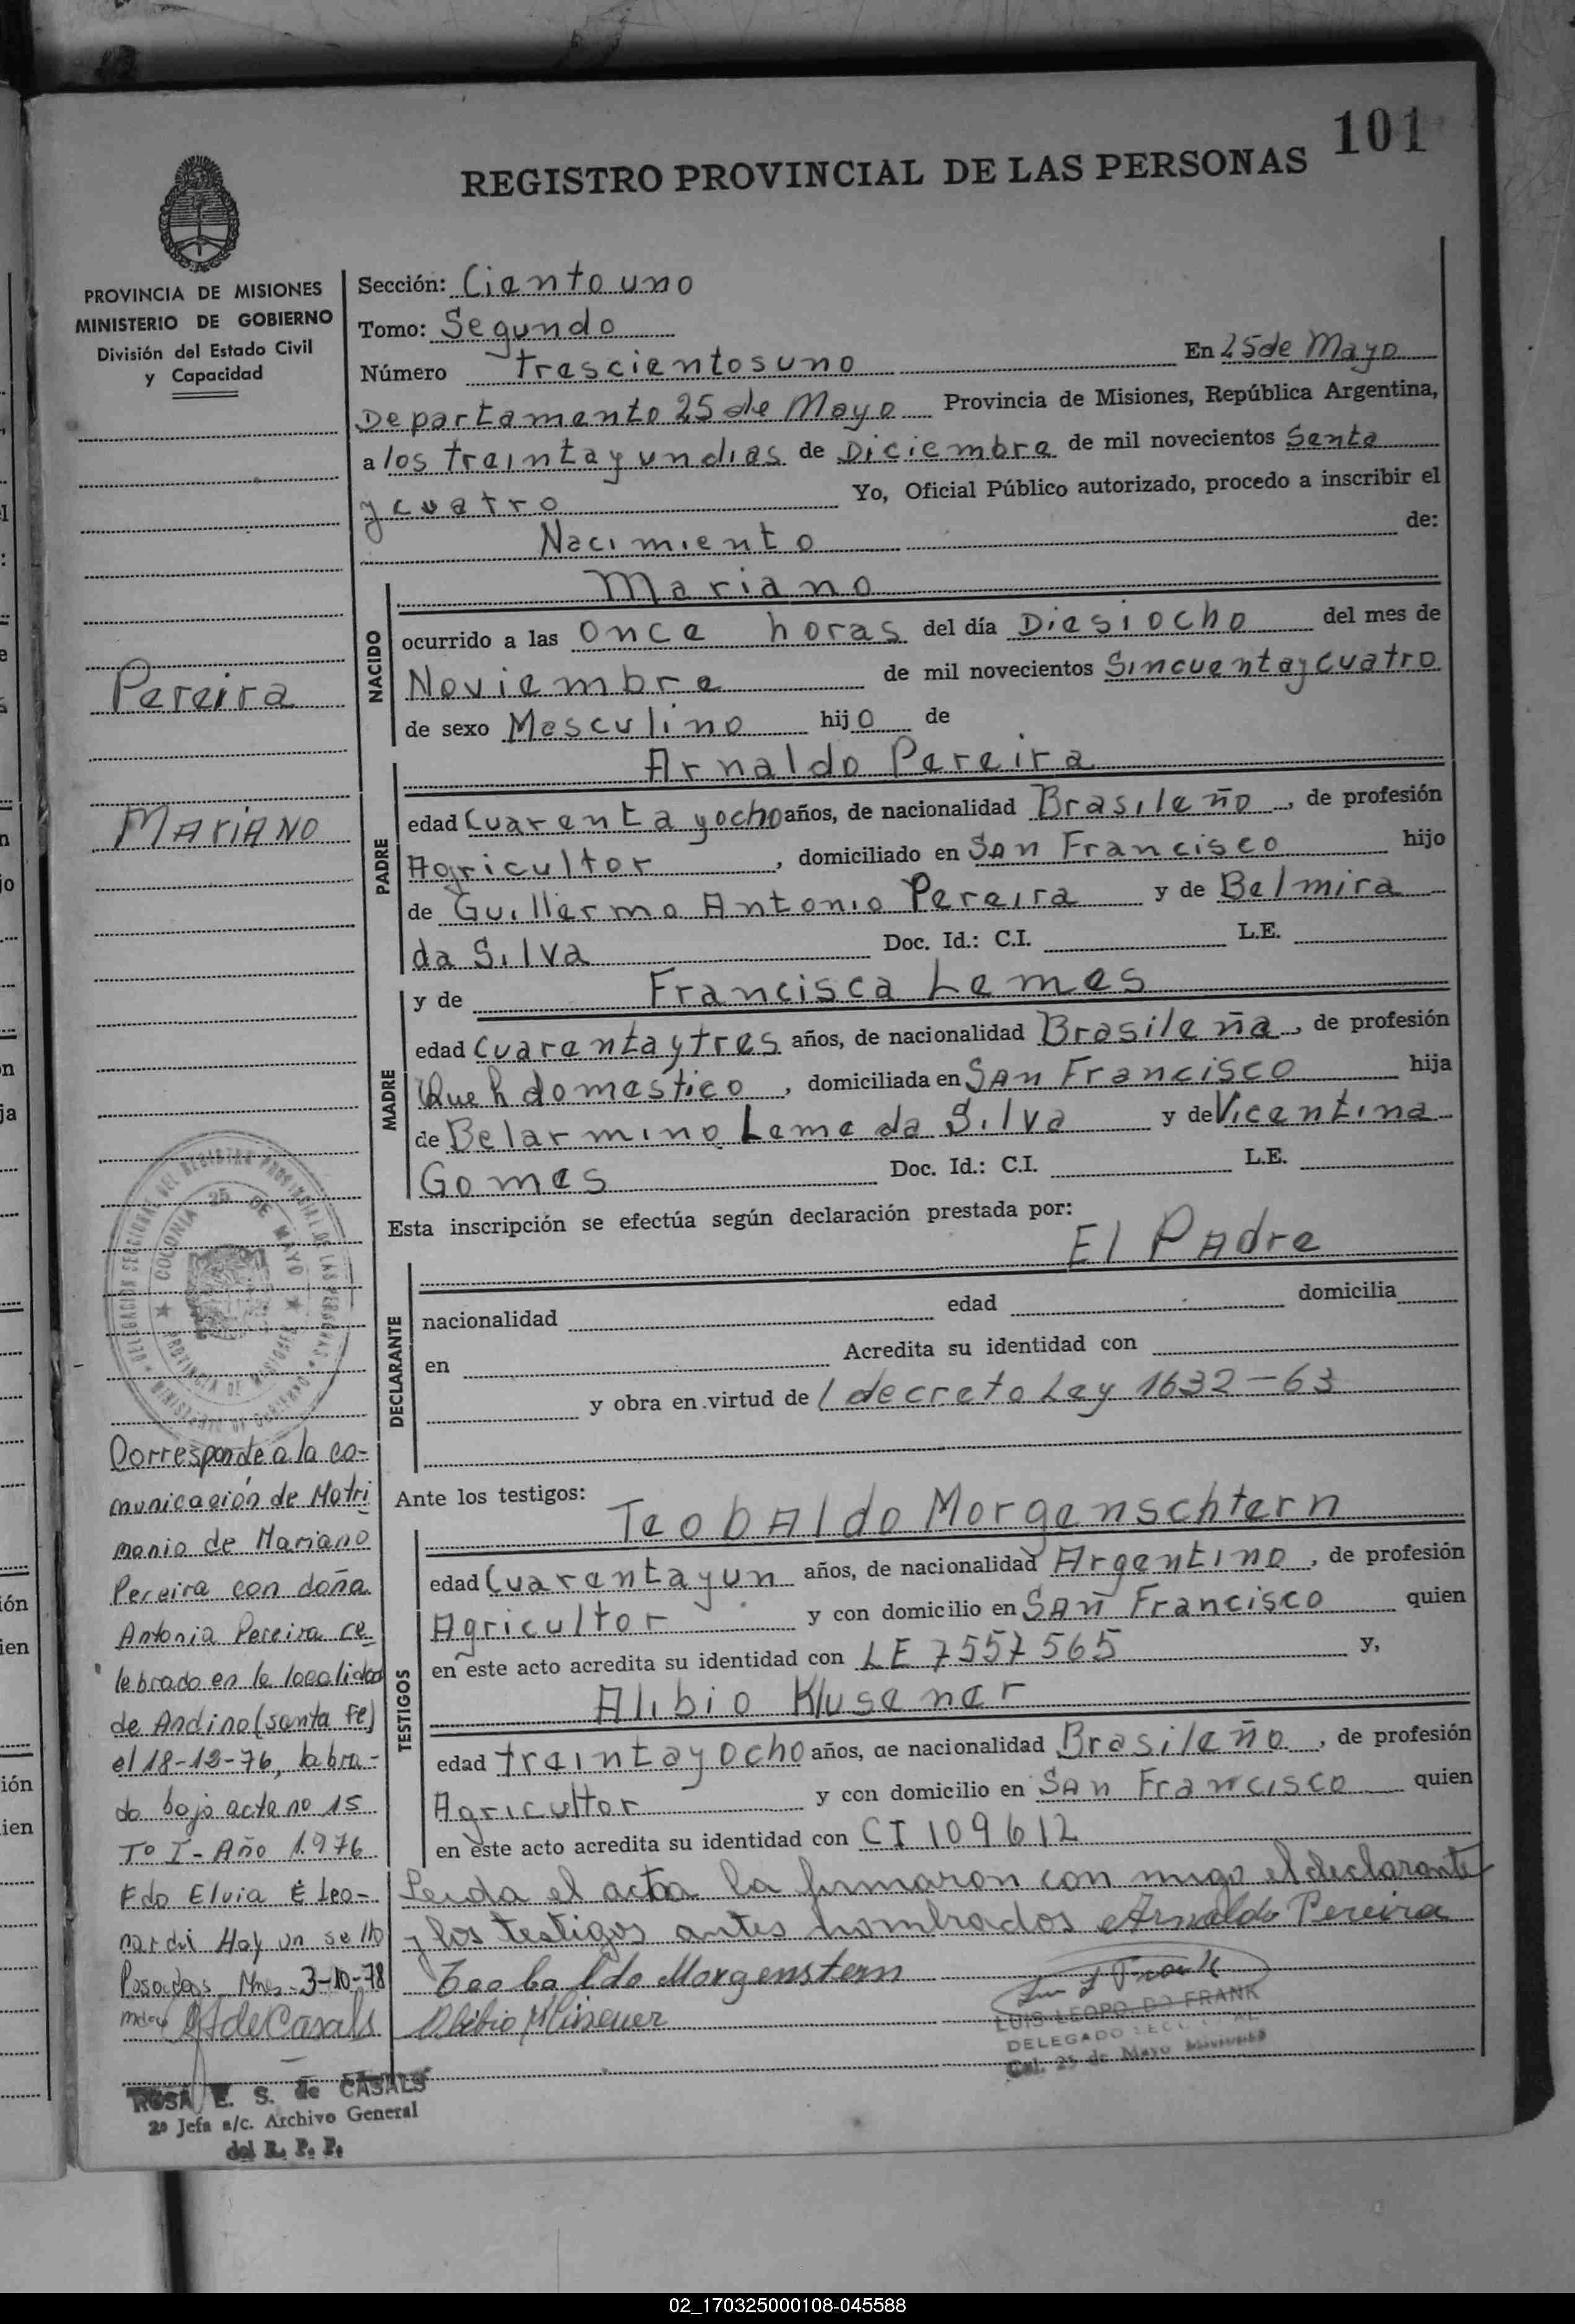 101
REGISTRO PROVINCIAL DE LAS PERSONAS
PROVINCIA DE MISIONES
MINISTERIO DE GOBIERNO
División del Estado Civil
y Capacidad
Pereira
MARIANO
DELEGACION SECCIONAL DEL REGISTRO PROVINCIAL DE LAS PERSONAS
COLONIA 25 DE MAYO
PROVINCIA DE MISIONES
MINISTERIO DE GOBIERNO
Corresponde a la co-
municación de Matri
monio de Mariano
Pereira con doña
Antonia Pereira ce_
lebrado en la localidad
de Andino (santa Fe)
el 18-12-76, labra-
do bajo acta no 15
To I - Año 1.976
Fdo Elvia E Leo-
nardi Hay un sello
Posadas Mnes. 3-10-78
de Casals
ROSA E. S. de CASALS
2a Jefa a/c. Archivo General
del R. P. P.
Sección: Ciento uno
Tomo: Segundo
Número trescientos uno En 25 de Mayo
Departamento 25 de Mayo Provincia de Misiones, República Argentina,
a los treinta y un dias de Diciembre de mil novecientos Senta
y cuatro Yo, Oficial Público autorizado, procedo a inscribir el
Nacimiento de:
NACIDO
Mariano
ocurrido a las once horas del día Diesiocho del mes de
Noviembre de mil novecientos Sincuenta y cuatro
de sexo Masculino hijo de
PADRE
Arnaldo Pereira
edad Cuarenta y ocho años, de nacionalidad Brasileño, de profesión
Agricultor, domiciliado en San Francisco hijo
de Guillermo Antonio Pereira y de Belmira
da Silva Doc. Id.: C.I. L.E.
MADRE
y de Francisca Lemes
edad Cuarenta y tres años, de nacionalidad Brasileña, de profesión
Queh domestico, domiciliada en San Francisco hija
de Belarmino Leme da Silva y de Vicentina
Gomes Doc. Id.: C.I. L.E.
Esta inscripción se efectúa según declaración prestada por:
El Padre
DECLARANTE
nacionalidad edad domicilia
en Acredita su identidad con
y obra en virtud de l decreto Ley 1632-63
Ante los testigos:
TESTIGOS
Teobaldo Morgenschtern
edad Cuarenta y un años, de nacionalidad Argentino, de profesión
Agricultor y con domicilio en San Francisco quien
en este acto acredita su identidad con LE 7557565 y,
Alibio Klusener
edad treinta y ocho años, de nacionalidad Brasileño, de profesión
Agricultor y con domicilio en San Francisco quien
en este acto acredita su identidad con CI 109612
Leida el acta la firmaron con migo el declarante
y los testigos antes nombrados Arnaldo Pereira
Teobaldo Morgenstern
LUIS LEOPOLDO FRANK
DELEGADO SECCIONAL
Col. 25 de Mayo Misiones
02_170325000108-045588